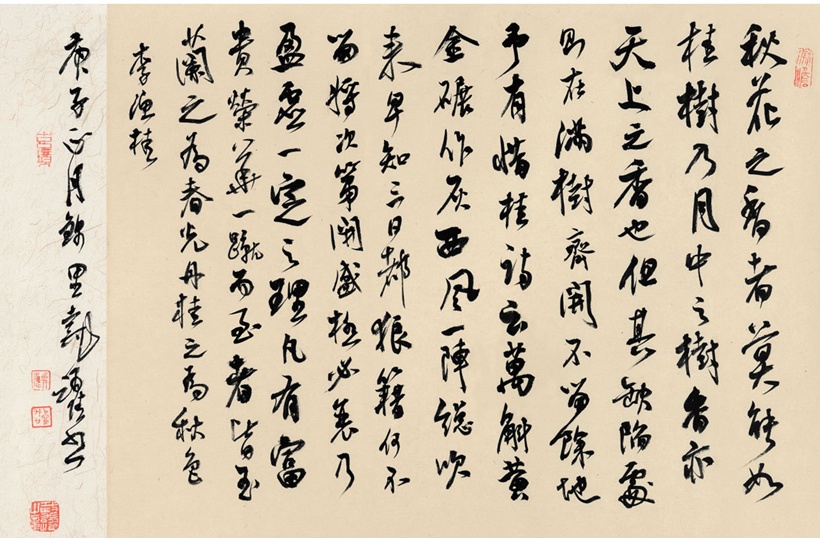 秋花之香者莫能如
桂樹乃月中之樹香亦
天上之香也但其缺陷處
則在滿樹齊開不留餘地
予有惜桂詩云萬斛黃
金碾作灰西風一陣總吹
来早知三日都狼籍何不
留將次第開盛極必衰乃
盈虛一定之理凡有富
貴榮華一蹴而至者皆玉
蘭之為春光丹桂之為秋色
李漁桂
庚子正月錦里